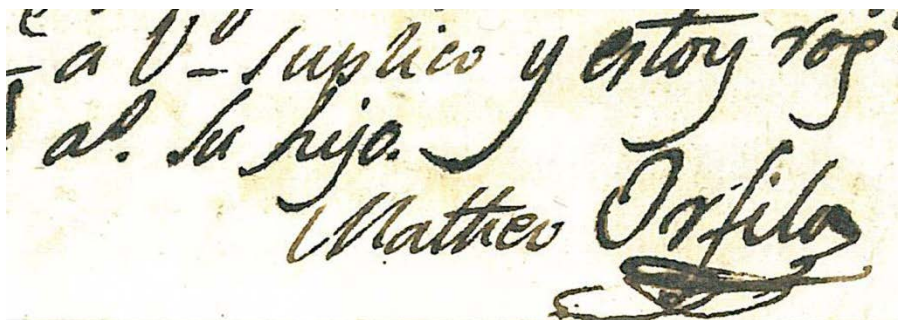 a V^d suplico y estoy rog^
a^o. su hijo.
Matheo Orfila